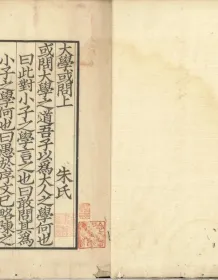 大學或問上
朱氏
或問大學之道吾子以為大人之學何也
曰此對小子之學言之也曰敢問其為
小子之學何也曰愚於序文已略陳之